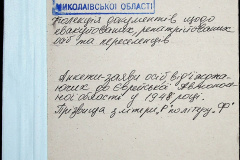 МИКОЛАЇВСЬКОЇ ОБЛАСТІ
Колекція документів щодо
евакуйованих, репатрійованих
осіб та переселенців
Анкети-заяви осіб від'їжджа-
ючих до Єврейської Автоном-
ної області у 1948 році.
Прізвища з літери "